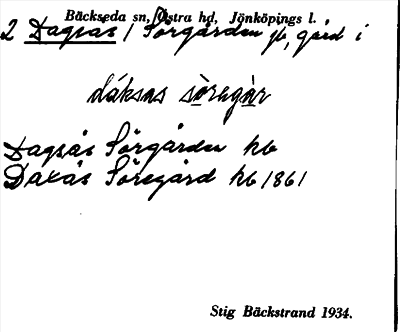 Bäckseda sn, Östra hd, Jönköpings l.
2 Dagsås / Sörgården jb, gård i
dáksas sǜregàr
Dagsås Sörgården kb
Daxås Söregård kb 1861
Stig Bäckstrand 1934.